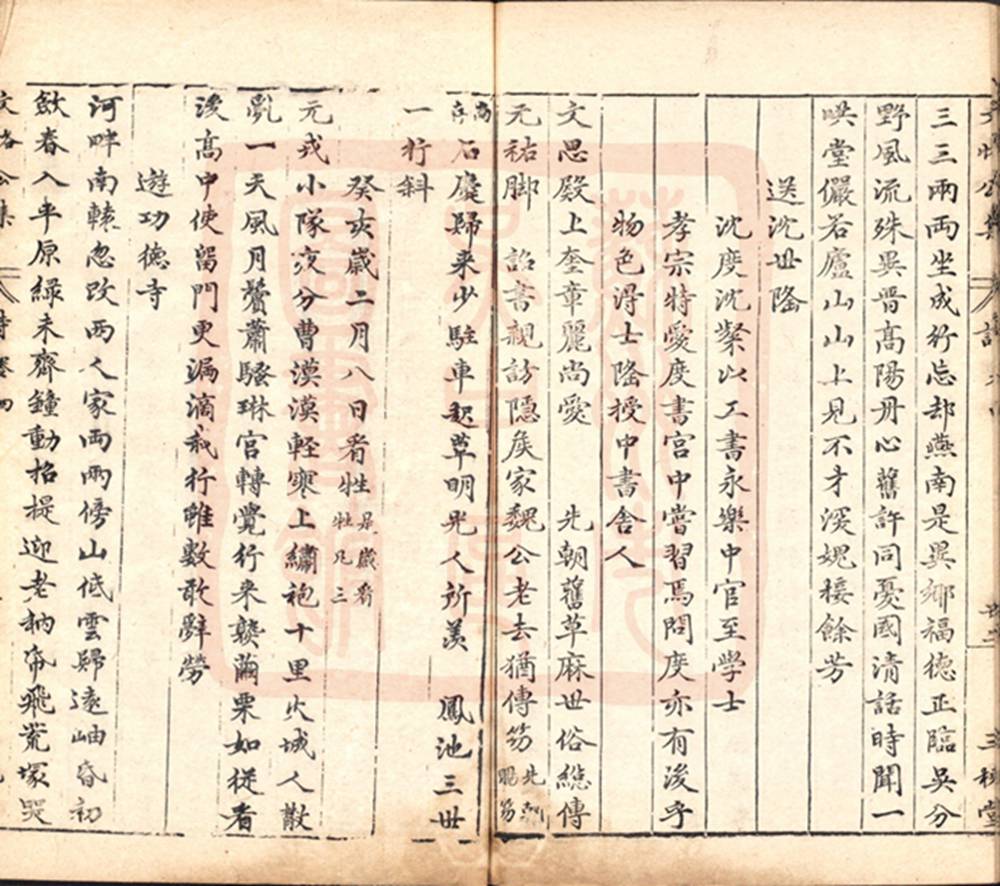 三三兩兩坐成行忘却燕南是異鄉福德正臨吳分
野風流殊異晋高陽丹心舊許同憂國清話時聞一
哄堂儼若廬山山上見不才深媿接餘芳
送沈世隆
沈度沈粲以工書永樂中官至學士
孝宗特愛度書宮中嘗習焉問度亦有後乎
物色得士隆授中書舍人
文思殿上奎章麗尚愛　先朝舊草麻世俗緫傳
元祐脚　詔書親訪隱矦家魏公老去猶傳笏
石廬歸来少駐車起草明光人所羡　鳳池三世
一行斜
癸亥歲二月八日看牲是歲看牲凡三
元戎小隊夜分曹漠漠輕寒上繡袍十里火城人散
亂一天風月鬢蕭騷琳宮轉覺行来藐繭栗如從看
後高中使留門更漏滴
行雖數敢辭勞
遊功德寺
河畔南轅忽改兩人家雨兩傍山低雲歸遠岫昏初
歛春入平原緑未齊鐘動招提迎老衲
飛荒塚哭